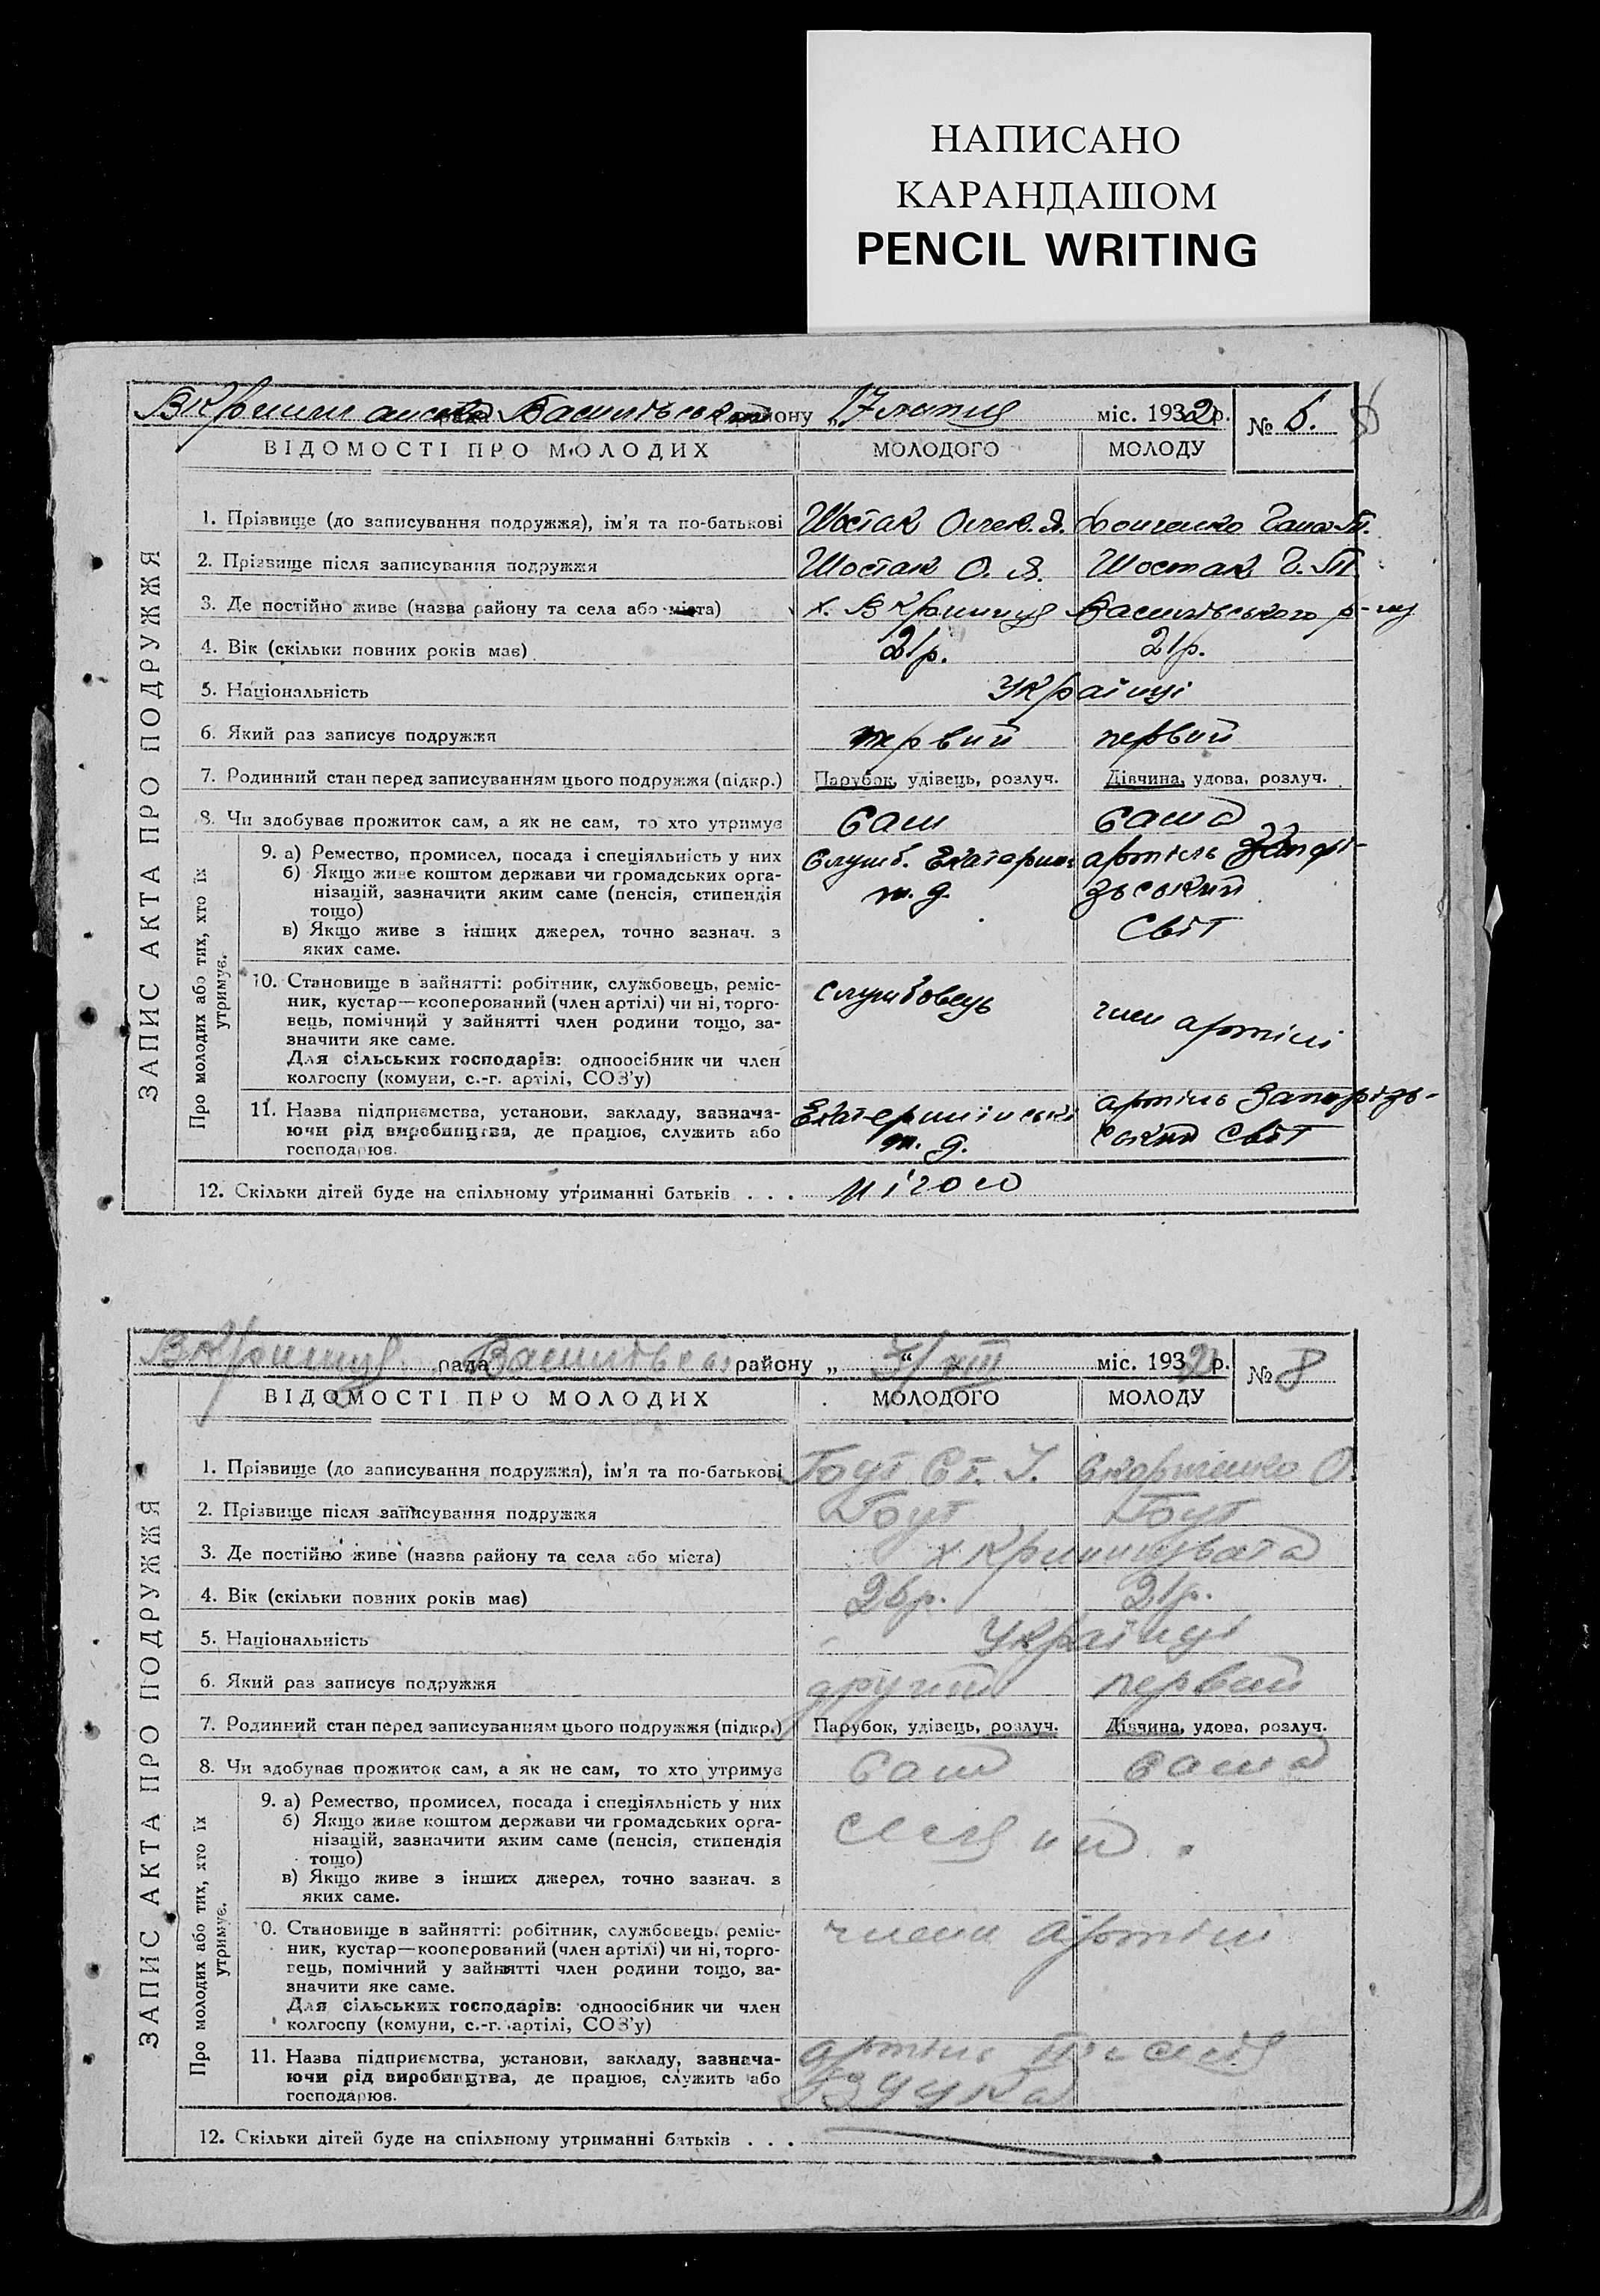 НАПИСАНО
КАРАНДАШОМ
PENCIL WRITING
району „17 липня міс. 1932 р. № 6.
ВІДОМОСТІ ПРО МОЛОДИХ МОЛОДОГО МОЛОДУ
ЗАПИС АКТА ПРО ПОДРУЖЖЯ
1. Прізвище (до записування подружжя), ім’я та по-батькові Шостак Олек. Я. Донченко Гана П.
2. Прізвище після записування подружжя Шостак О. Я. Шостак Г. П.
3. Де постійно живе (назва району та села або міста) х. В Криниця Василівського р-ну
4. Вік (скільки повних років має) 21р. 21р.
5. Національність Українці
6. Який раз записує подружжя первий первий
7. Родинний стан перед записуванням цього подружжя (підкр.) Парубок, удівець, розлуч. Дівчина, удова, розлуч.
8. Чи здобуває прожиток сам, а як не сам, то хто утримує сам сама
Про молодих або тих, хто їх утримує.
9. а) Ремество, промисел, посада і спеціяльність у них Служб. Екатерин. артіль Запорі-
б) Якщо живе коштом держави чи громадських орга- т. д. зьский
нізацій, зазначити яким саме (пенсія, стипендія
тощо) Світ
в) Якщо живе з інших джерел, точно зазнач. з
яких саме.
10. Становище в зайнятті: робітник, службовець, реміс- службовець
ник, кустар—кооперований (член артілі) чи ні, торго- член артілі
вець, помічний у зайнятті член родини тощо, за-
значити яке саме.
Для сільських господарів: одноосібник чи член
колгоспу (комуни, с.-г. артілі, СОЗ’у)
11. Назва підприємства, установи, закладу, зазнача- артіль Запорізь-
ючи рід виробництва, де працює, служить або т. д. ський Світ
господарює.
12. Скільки дітей буде на спільному утриманні батьків . . . нікого
рада району „ “ міс. 1932 р. № 8
ВІДОМОСТІ ПРО МОЛОДИХ МОЛОДОГО МОЛОДУ
ЗАПИС АКТА ПРО ПОДРУЖЖЯ
1. Прізвище (до записування подружжя), ім’я та по-батькові Ст. О.
2. Прізвище після записування подружжя
3. Де постійно живе (назва району та села або міста) х Криничувата
4. Вік (скільки повних років має) 26р. 21р.
5. Національність Українці
6. Який раз записує подружжя другий первий
7. Родинний стан перед записуванням цього подружжя (підкр.) Парубок, удівець, розлуч. Дівчина, удова, розлуч.
8. Чи здобуває прожиток сам, а як не сам, то хто утримує сам сама
Про молодих або тих, хто їх утримує.
9. а) Ремество, промисел, посада і спеціяльність у них
б) Якщо живе коштом держави чи громадських орга-
нізацій, зазначити яким саме (пенсія, стипендія
тощо)
в) Якщо живе з інших джерел, точно зазнач. з
яких саме.
0. Становище в зайнятті: робітник, службовець, реміс- члени артілі
ник, кустар—кооперований (член артілі) чи ні, торго-
вець, помічний у зайнятті член родини тощо, за-
значити яке саме.
Для сільських господарів: одноосібник чи член
колгоспу (комуни, с.-г. артілі, СОЗ’у)
11. Назва підприємства, установи, закладу, зазнача- артіль
ючи рід виробництва, де працює, служить або
господарює.
12. Скільки дітей буде на спільному утриманні батьків . . .